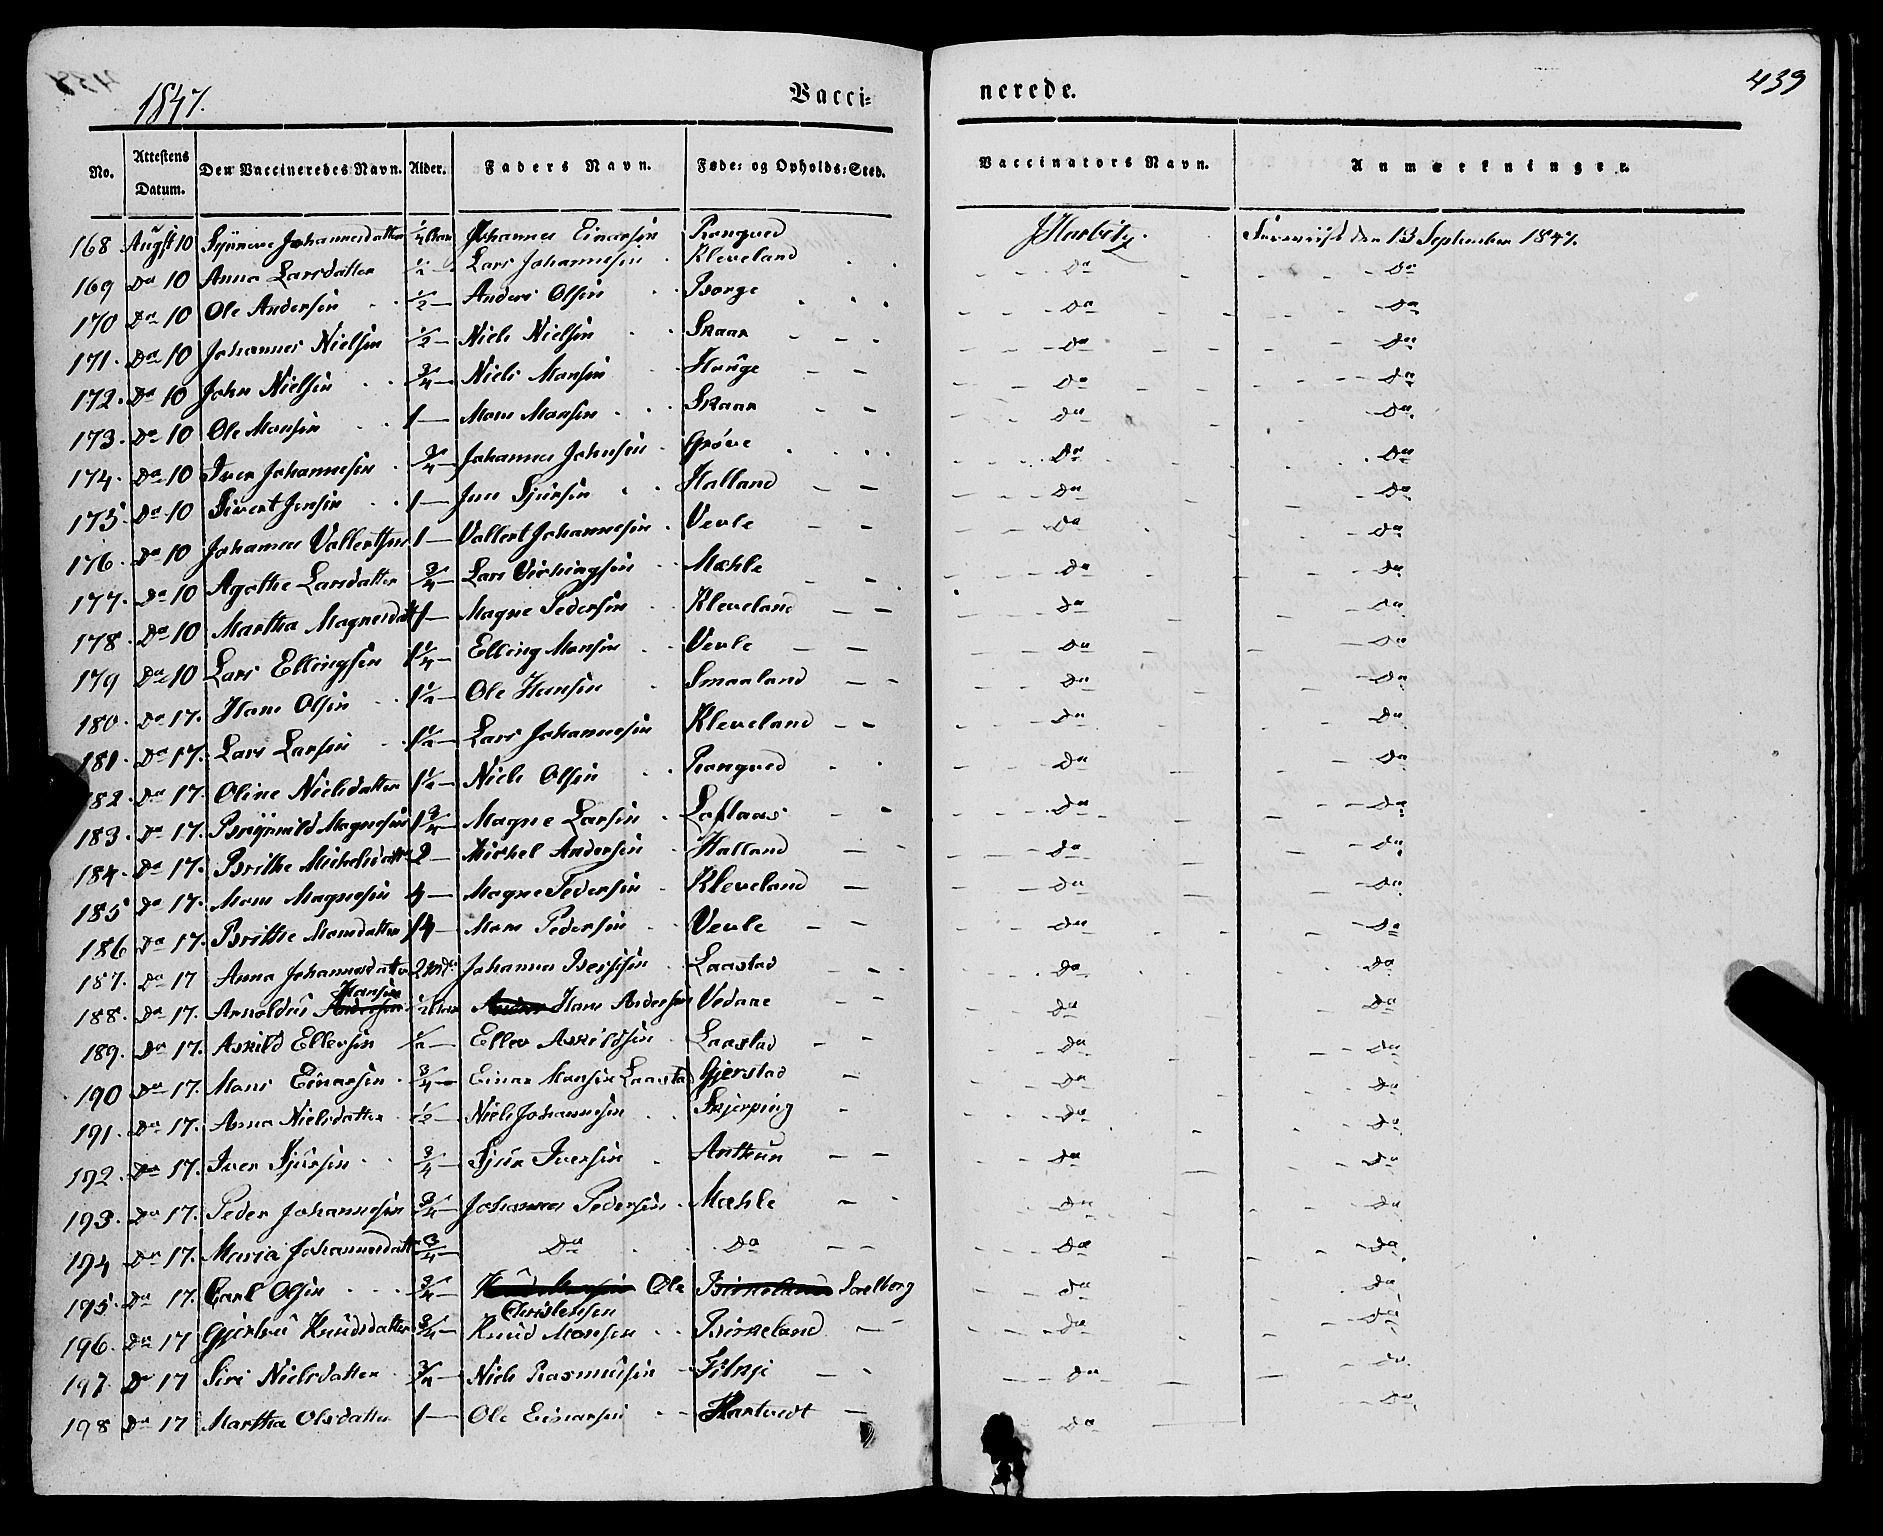 1847.
Vacci=
nerede.
439
No. Attestens Datum. Den Vaccineredes Navn. Alder. Faders Navn. Føde= og Opholds=Sted. Vaccinators Navn. Anmærkninger.
168 Augst 10 Synneve Johannesdatter 1/4 Aar Johannes Einarsen Rongved JHarbitz. den 13 September 1847.
169 Do 10 Anna Larsdatter 1/2 Lars Johannesen Kleveland - - Do - Do
170 Do 10 Ole Andersen 1/2 — Anders Olsen Borge - - Do - Do
171. Do 10 Johannes Nielsen 1/2 — Niels Nielsen Skaar - - Do - Do
172. Do 10 John Nielsen 3/4 — Niels Monsen Hauge - - Do - Do
173. Do 10 Ole Monsen 1 — Mons Monsen Skaar - - Do - Do
174. Do 10 Iver Johannesen 3/4 — Johannes Johnsen Grøve - - Do - Do
175. Do 10 Sivert Jensen 1 — Jens Sjursen Halland - - Do - Do
176. Do 10 Johannes Vallertsen 1 — Vallert Johannesen Vevle - - Do - Do
177. Do 10 Agathe Larsdatter 3/4 — Lars Mæhle - - Do - Do
178. Do 10 Martha Magnesdatt 1 — Magne Pedersen Kleveland - - Do - Do
179 Do 10 Lars Ellingsen 1 1/4 — Elling Monsen Vevle - - Do - Do
180. Do 17. Hans Olsen 1 1/2 — Ole Hansen Smaaland - - Do - Do
181. Do 17. Lars Larsen 1 1/2 — Lars Johannesen Kleveland - - Do - Do
182. Do 17. Oline Nielsdatter 1 1/2 — Niels Olsen Rongved - - Do - Do
183. Do 17. Brynnild Magnesen 1 3/4 — Magne Larsen Loftaas - - Do - Do
184. Do 17. Brithe Michelsdatt 2 — Michel Andersen Halland - - Do - Do
185 Do 17. Mons Magnesen 4 — Magne Pedersen Kleveland - Do - Do
186 Do 17. Brithe Monsdatter 14 — Mons Pedersen Vevle - - Do - Do
187. Do 17 Anna Johannesdatter Johannes Laastad - - Do - Do
Hansen
188. Do 17. Arnoldus 1/2 Aar Hans Andersen Vedaae - - Do - Do
189. Do 17. Askild Ellersen 1/2 — Eller Askildsen Laastad - - Do - Do
190 Do 17. Mons Einarsen 3/4 — Einar Monsen Laastad Gjerstad - Do - Do
191. Do 17. Anna Nielsdatter 1/2 — Niels Johannesen Skjerping - Do - Do
192. Do 17. Iver Sjursen 3/4 — Sjur Iversen Anthun - - Do - Do
193. Do 17. Peder Johannesen 3/4 — Johannes Pedersen Mæhle - - Do - Do
194 Do 17. Maria Johannesdatt 3/4 — Do Do - - Do - Do
195. Do 17. Carl Olsen 3/4 — Ole Birkeland Soelberg Do - Do
Christensen
196. Do 17 Gjertrud Knudsdatter 3/4 — Knud Monsen Birkeland - - Do - Do
197. Do 17 Siri Nielsdatter 3/4 — Niels Rasmussen - - Do - Do
198 Do 17 Martha Olsdatter 1 — Ole Einarsen Hartvedt - Do - Do